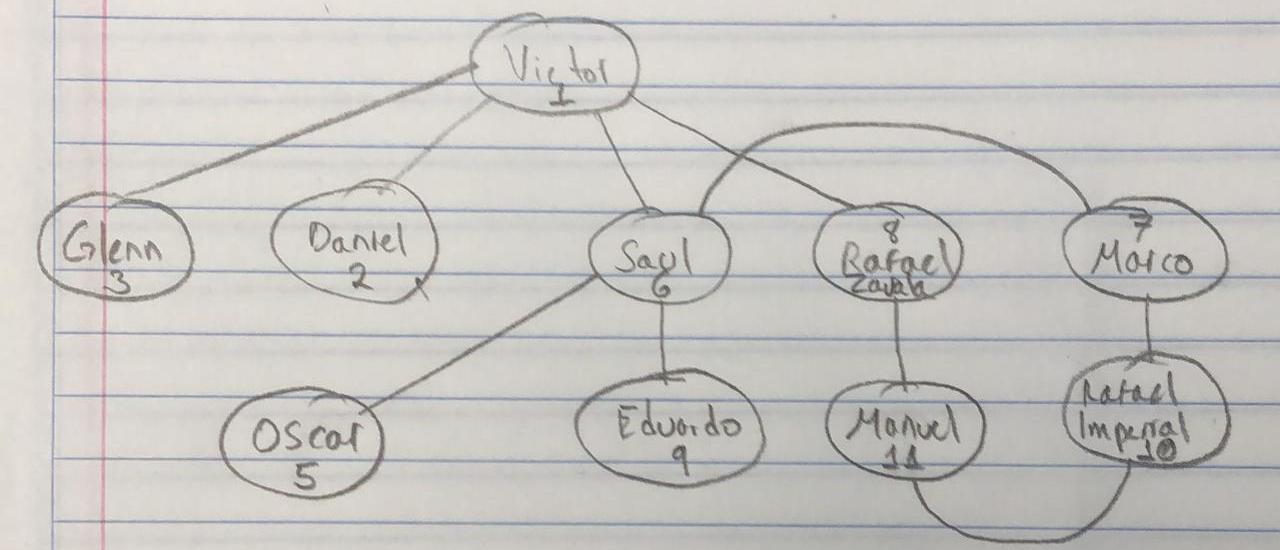 Victor
1
Glenn
3
Daniel
2
Saul
6
8
Rafael
Zavala
7
Marco
Oscar
5
Eduardo
9
Manuel
11
Rafael
Imperial
10